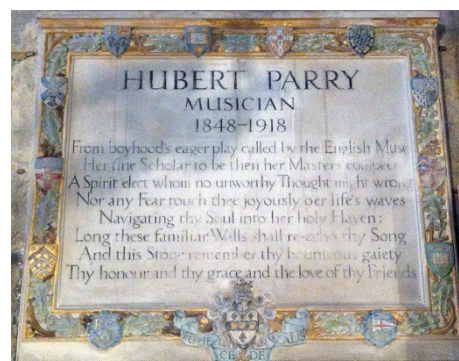 HUBERT PARRY
MUSICIAN
1848–1918
From boyhood's eager play called by the English Muse
Her fine Scholar to be then her Masters compeer
A Spirit elect whom no unworthy Thought might wrong
Nor any Fear touch thee joyously o'er life's waves
Navigating thy Soul into her holy Haven:
Long these familiar Walls shall re-echo thy Song
And this Stone remember thy bounteous gaiety
Thy honour and thy grace and the love of thy Friends